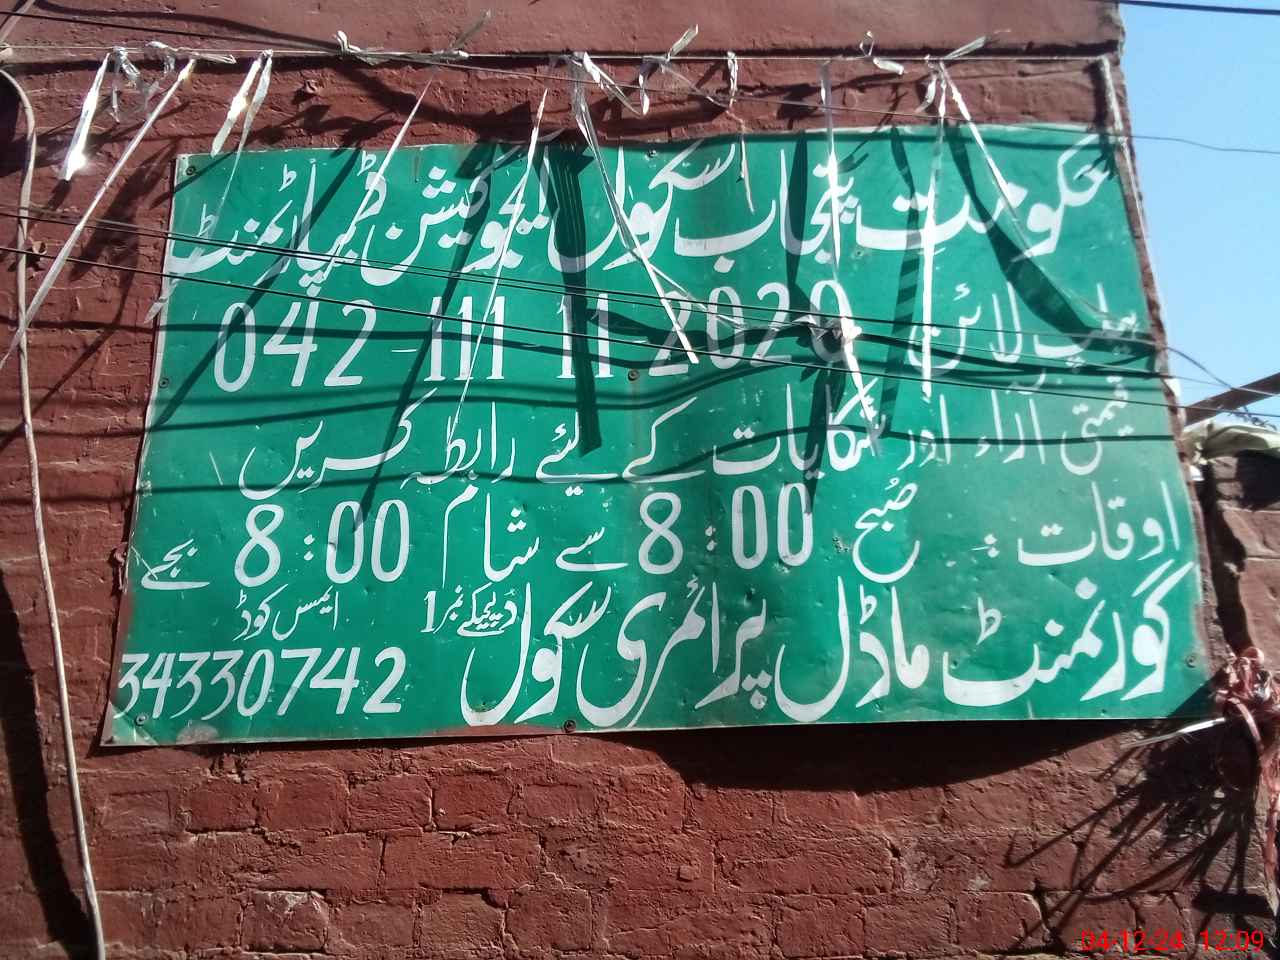 حکومت پنجاب سکول ایجوکیشن ڈیپارٹمنٹ
ہیلپ لائن 042-111-11-2020
قیمتی آراء اور شکایات کے لیئے رابطہ کریں
اوقات : صبح 8:00 سے شام 8:00 بجے
گورنمنٹ ماڈل پرائمری سکول نمبر 1
ایمس کوڈ
34330742
04-12-24 12:09